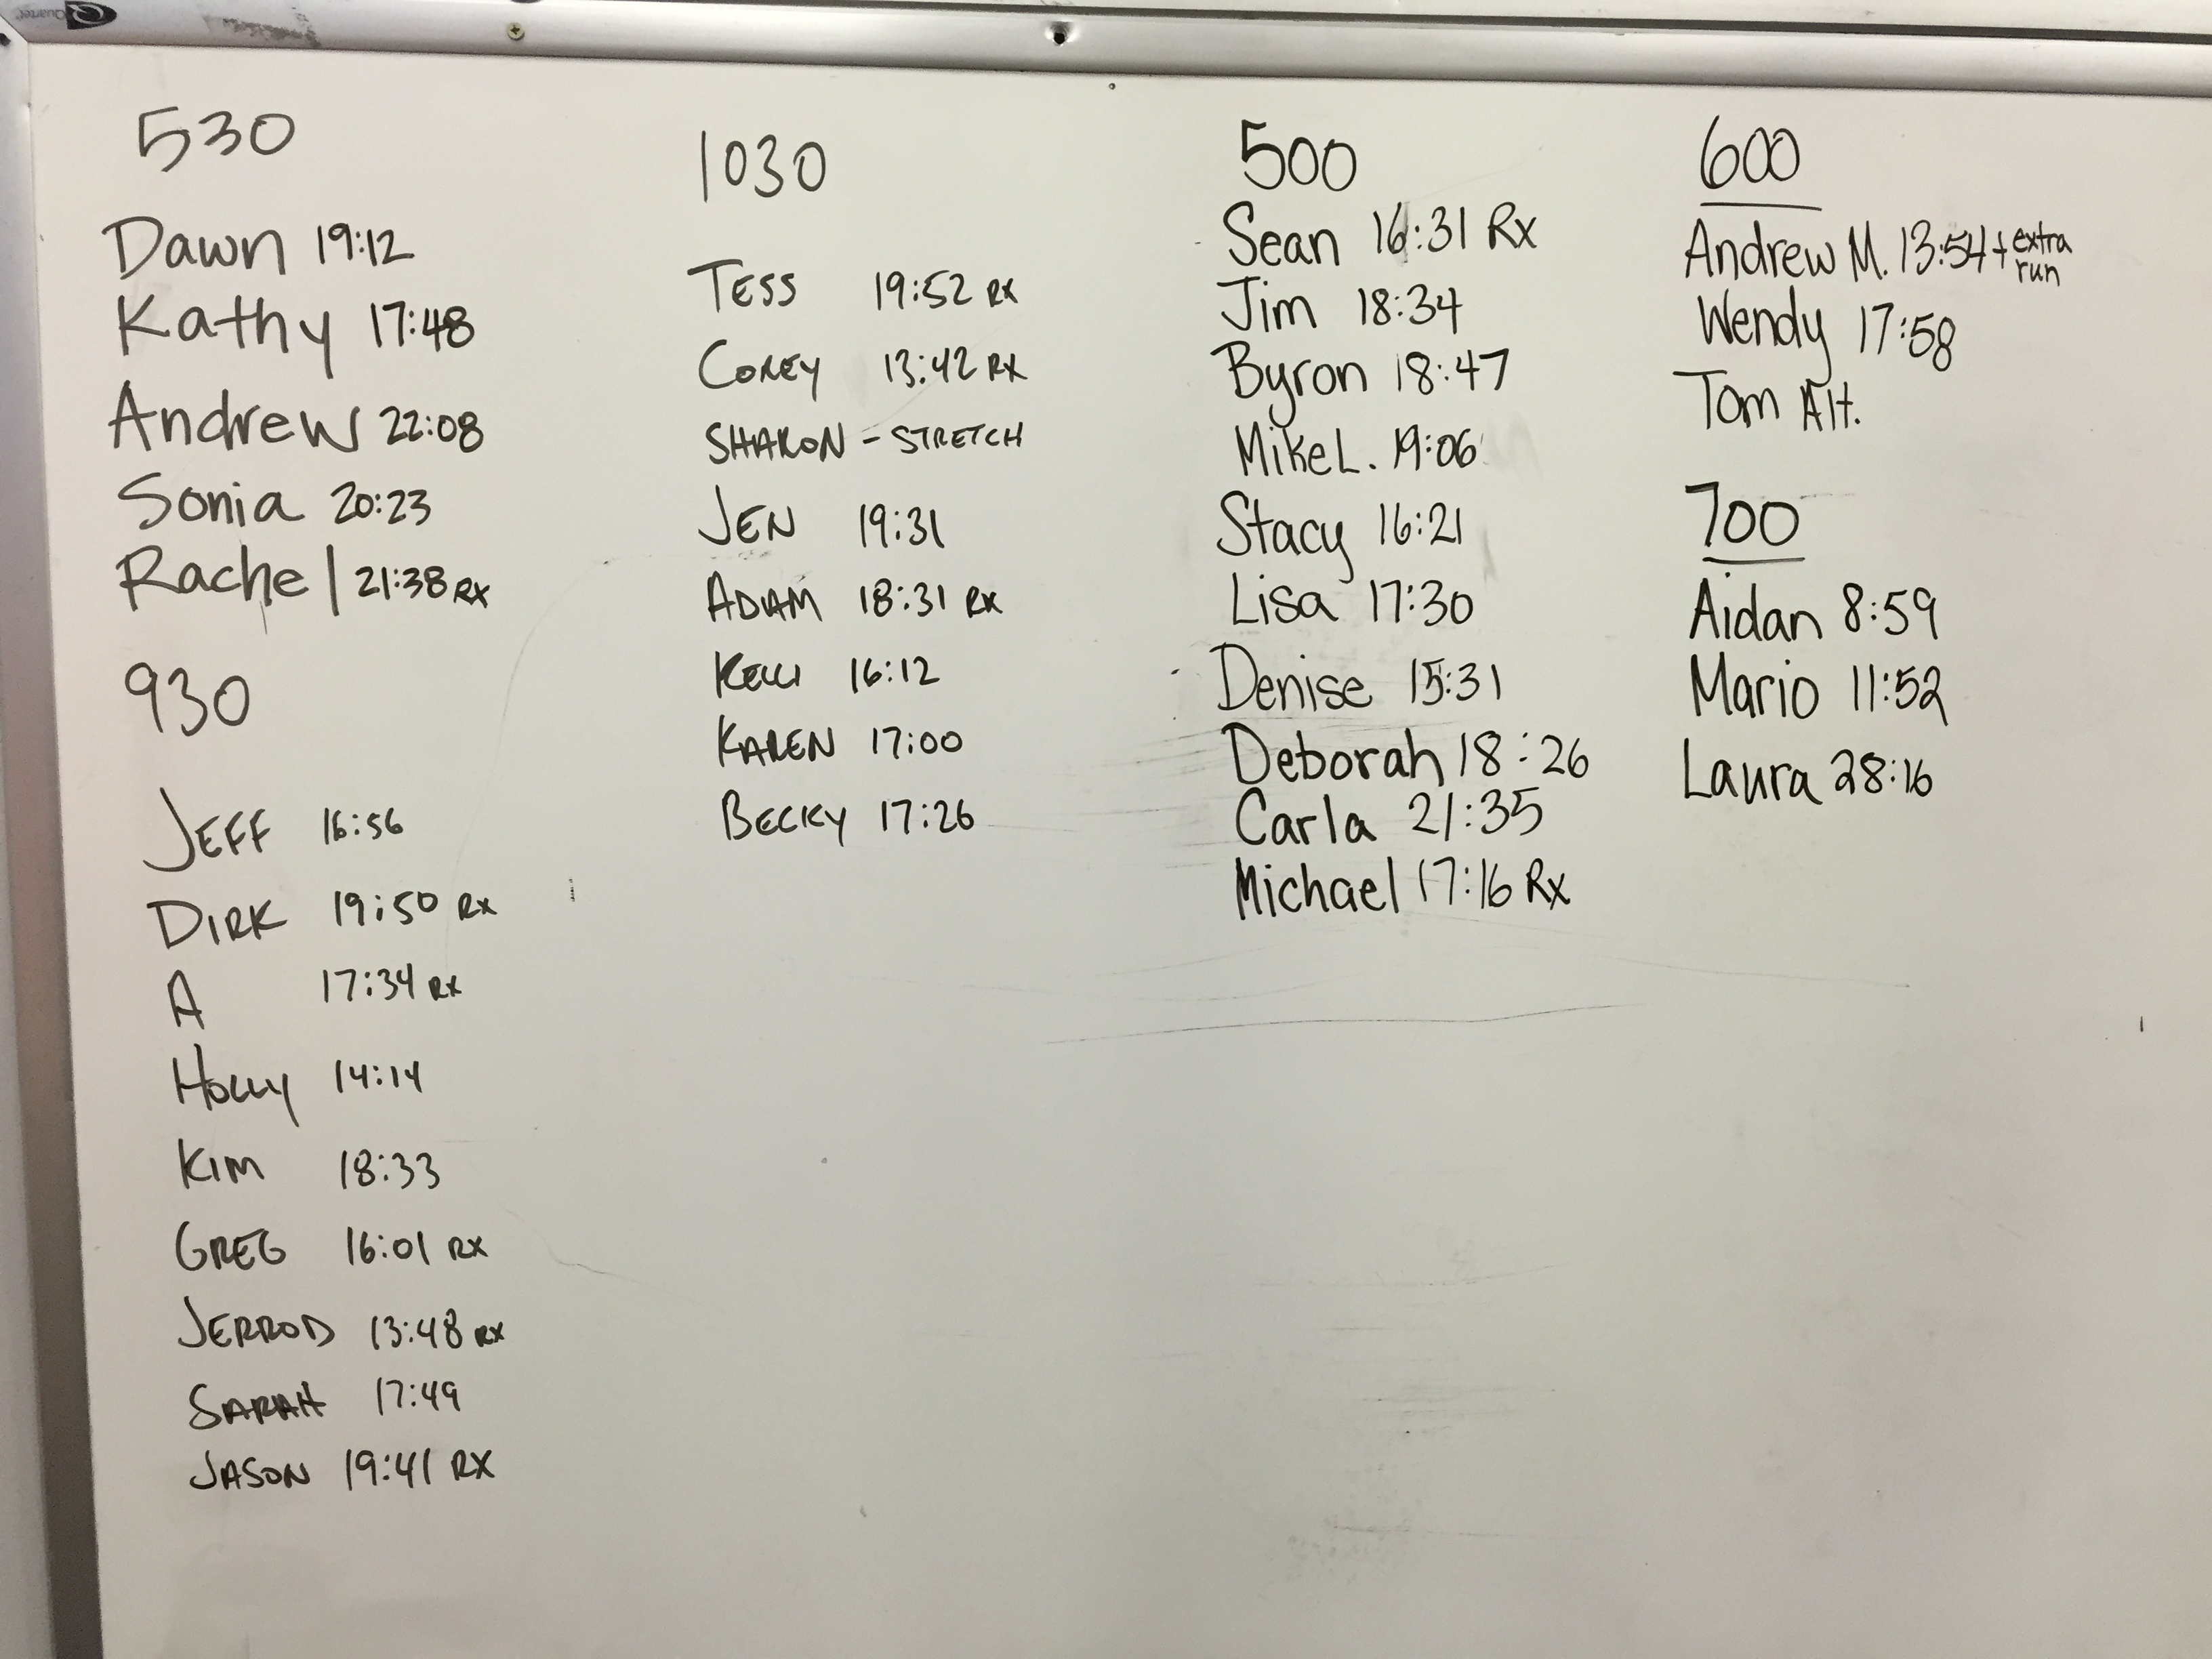 Quartet
530
Dawn 19:12
Kathy 17:48
Andrew 22:08
Sonia 20:23
Rachel 21:38 RX
930
JEFF 16:56
DIRK 19:50 RX
A 17:34 RX
HOLLY 14:14
KIM 18:33
GREG 16:01 RX
JERROD 13:48 RX
SARAH 17:49
JASON 19:41 RX
1030
TESS 19:52 RX
COREY 13:42 RX
SHARON - STRETCH
JEN 19:31
ADAM 18:31 RX
KELLI 16:12
KAREN 17:00
BECKY 17:26
500
Sean 16:31 Rx
Jim 18:34
Byron 18:47
Mike L. 19:06
Stacy 16:21
Lisa 17:30
Denise 15:31
Deborah 18:26
Carla 21:35
Michael 17:16 Rx
600
Andrew M. 13:54 + extra run
Wendy 17:58
Tom Alt.
700
Aidan 8:59
Mario 11:52
Laura 28:16